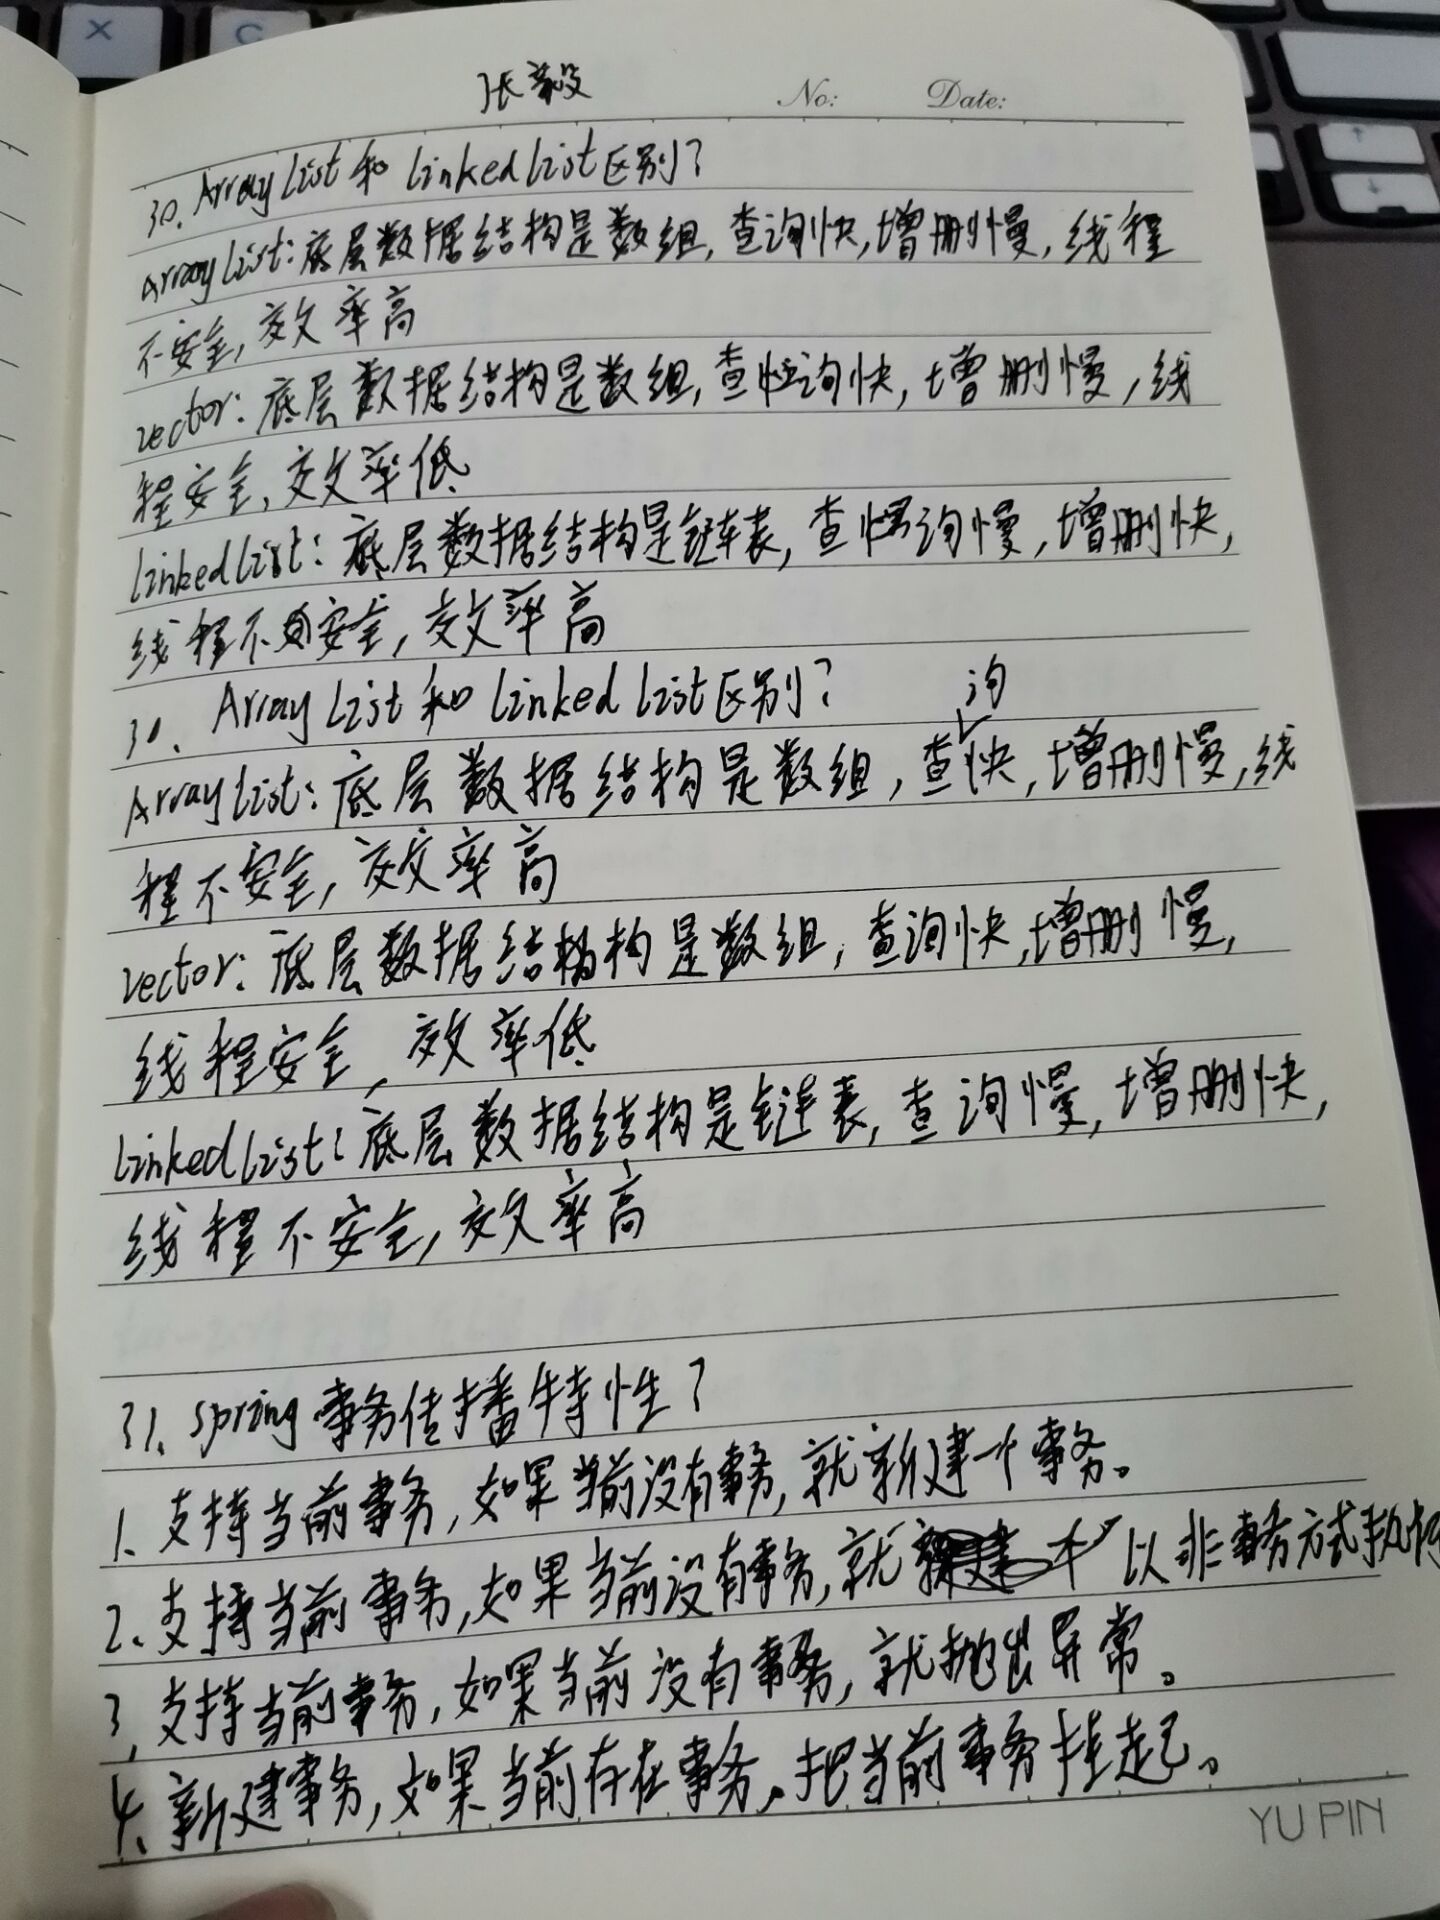 张毅
No: Date:
30. ArrayList 和 linkedlist区别?
ArrayList:底层数据结构是数组,查询快,增删慢,线程
不安全,效率高
vector:底层数据结构是数组,查询快,增删慢,线
程安全,效率低
linkedlist:底层数据结构是链表,查询慢,增删快,
线程不安全,效率高
30. ArrayList 和 linked list区别?
ArrayList:底层数据结构是数组,查询快,增删慢,线
程不安全,效率高
vector:底层数据结构是数组,查询快,增删慢,
线程安全,效率低
linkedlist:底层数据结构是链表,查询慢,增删快,
线程不安全,效率高
31. spring 事务传播特性?
1、支持当前事务,如果当前没有事务,就新建一个事务。
2、支持当前事务,如果当前没有事务,就以非事务方式执行
3、支持当前事务,如果当前没有事务,就抛出异常。
4、新建事务,如果当前存在事务,把当前事务挂起。
YU PIN